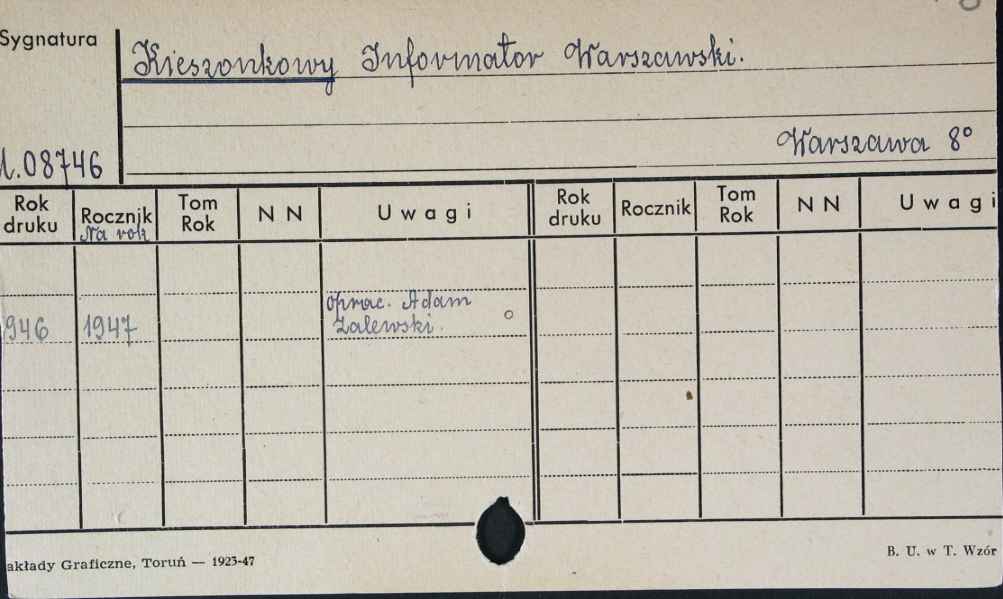 Sygnatura
Kieszonkowy Informator Warszawski.
Warszawa 8°
1.08746
Rok druku Rocznik Tom Rok N N Uwagi Rok druku Rocznik Tom Rok N N Uwagi
Na rok
946 1947 oprac. Adam
Zalewski.
akłady Graficzne, Toruń — 1923-47
B. U. w T. Wzór